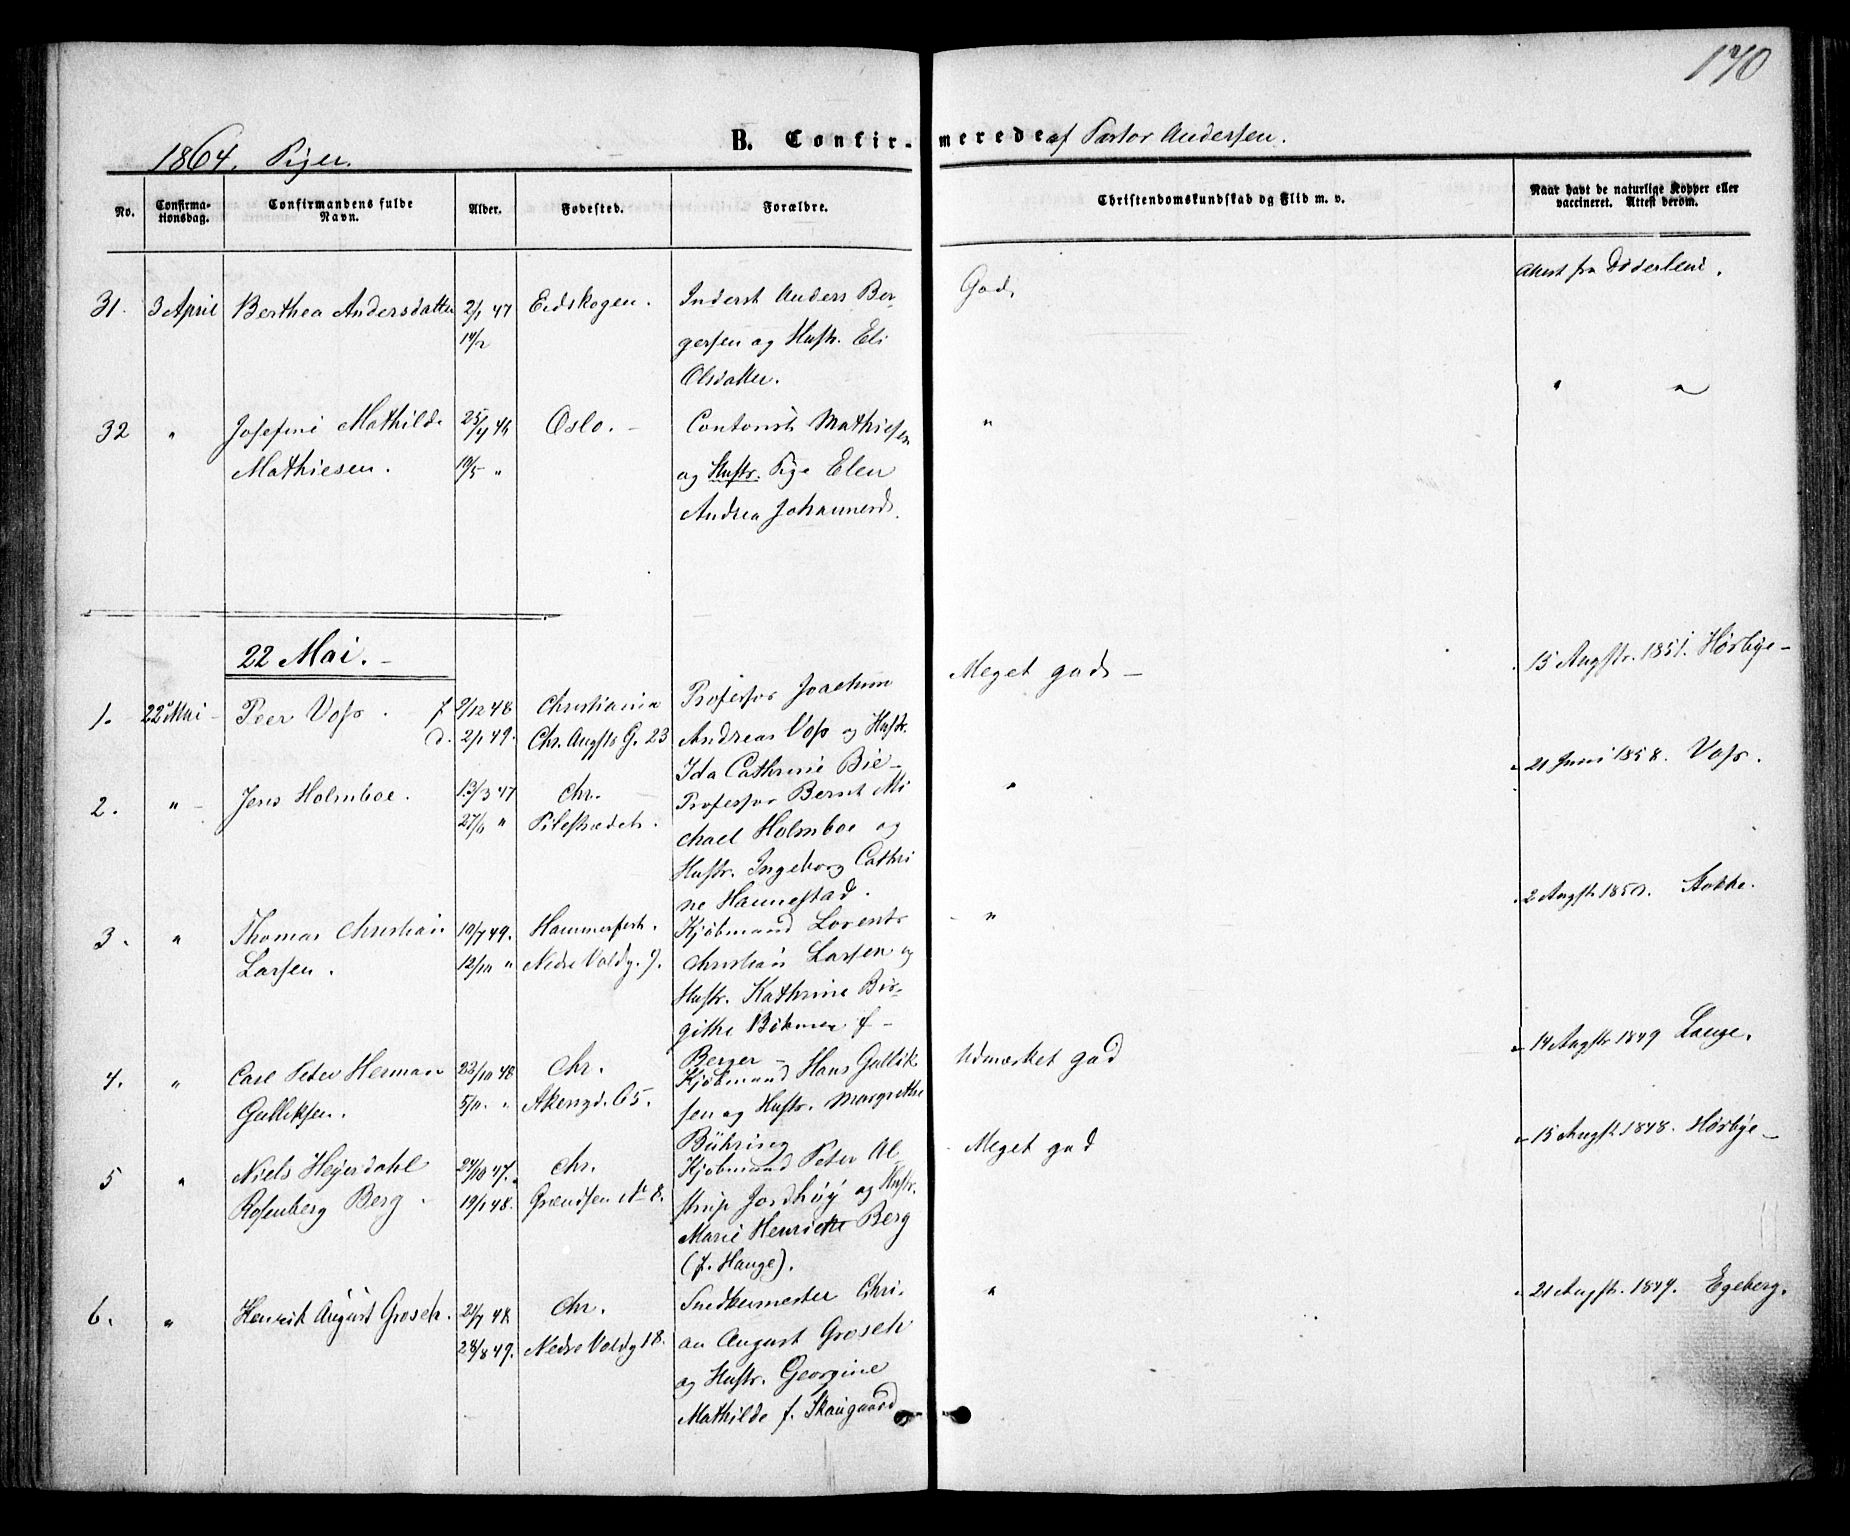 170
1864. Piger.
B. Confirmerede af Pastor Andersen.
No.
Confirmationsdag.
Confirmandens fulde Navn.
Alder.
Fødested.
Forældre.
Christendomskundskab og Flid m. v.
Naar havt de naturlige Kopper eller vaccineret. Attest derom.
31. 3 April Berthea Andersdatter 2/1 47 Eidskogen. Inderst Anders Ber- God. Attest fra Døderlein.
14/2 gersen og Hustr. Eli
Olsdatter.
32 " Josefine Mathilde 25/4 48 Oslo. - Contorist Mathiesen " " "
Mathiesen. 10/5 " og Hustr. Pige Elen
Andrea Johannesd.
22 Mai. -
1. 22 Mai - Peer Voss. f 9/12 48 Christiania Professor Joachim Meget god - 15 Augstr. 1851. Hørbye -
d. 2/1 49. Chr. Augsts G. 23 Andreas Voss og Hustr.
Ida Cathrine Bie -
2. " - Jens Holmboe. 13/3 47 Chr. Professor Bernt Mi " 21 Juni 1858. Voss.
27/11 " Pilestrædet. chael Holmboe og
Hustr. Ingeborg Cathri
ne Hannestad.
3. " Thomas Christian 10/7 49. Hammerfest. Kjøbmand Lorents - " 2 Augstr. 1850. Stokke.
Larsen. 12/10 " Nedre Voldg. 7. Christian Larsen og
Hustr. Kathrine Bir-
githe Bøkman f -
Berger -
4. " Carl Peter Herman 22/10 48 Chr. Kjøbmand Hans Gullik Udmærket god 14 Augstr 1849 Lange.
Gulliksen. 5/11. " Akersgd. 65. sen og Hustr. Margrethe
Bühring
5 " Niels Heyerdahl 24/10 47. Chr. Kjøbmand Peter Al- - Meget god 15 Augst 1848. Hørbye -
Rosenberg Berg. 19/1 48. Grændsen No 8. strup Jordhøy og Hustr.
Marie Henriette Berg
(f. Hauge).
6. " Henrik August Grosch. 21/7 48 Chr. Snedkermester Chri. " 21 Augstr. 1849. Egeberg.
28/8 49. Nedre Voldg 18. an August Grosch
og Hustr. Georgine
Mathilde f. Skaugaard